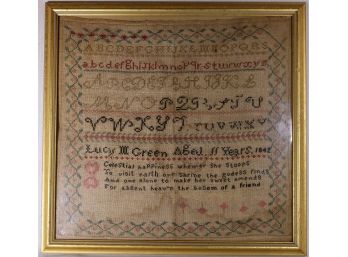 ABCDEFGHIJKLMNOPQRS
abcdefghijklmnopqrstuvwxyz
ABCDEFGHIJKL
MNOPQRSTU
VWXYZ
Lucy M Green Aged 11 Years. 1842
Celestial happiness whenever she stoops
To visit earth one shrine the godess finds
And one alone to make her sweet amends
For absent heaven the bosom of a friend